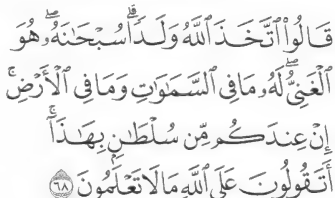 قَالُوا۟ ٱتَّخَذَ ٱللَّهُ وَلَدًا ۗ سُبْحَـٰنَهُۥ ۖ هُوَ
ٱلْغَنِىُّ ۖ لَهُۥ مَا فِى ٱلسَّمَـٰوَٰتِ وَمَا فِى ٱلْأَرْضِ ۚ
إِنْ عِندَكُم مِّن سُلْطَـٰنٍۭ بِهَـٰذَآ ۚ
أَتَقُولُونَ عَلَى ٱللَّهِ مَا لَا تَعْلَمُونَ ٦٨